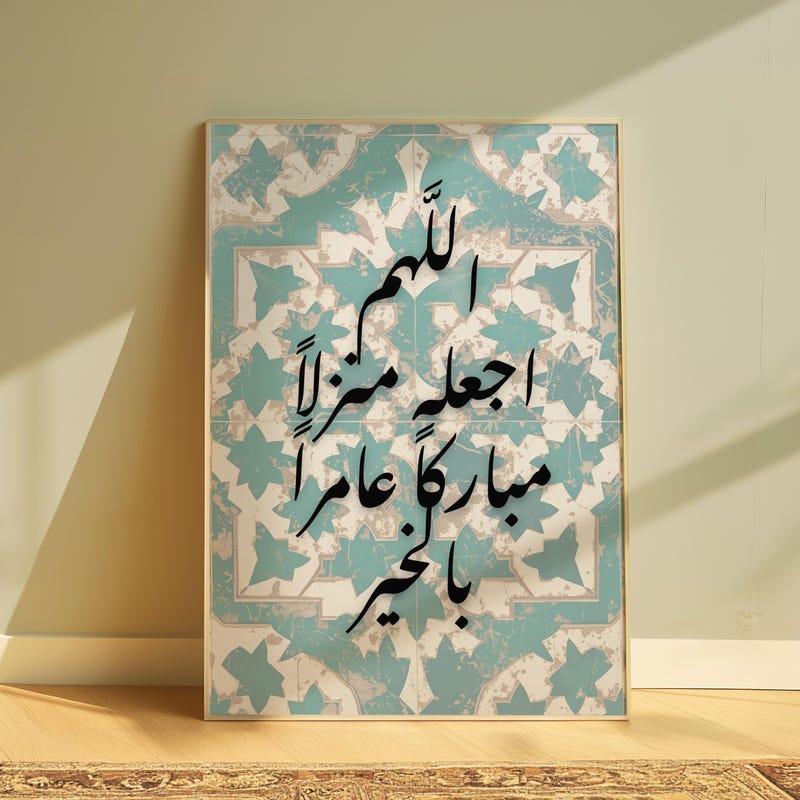 اللَّهم
اجعله منزلاً
مباركاً عامراً
بالخير